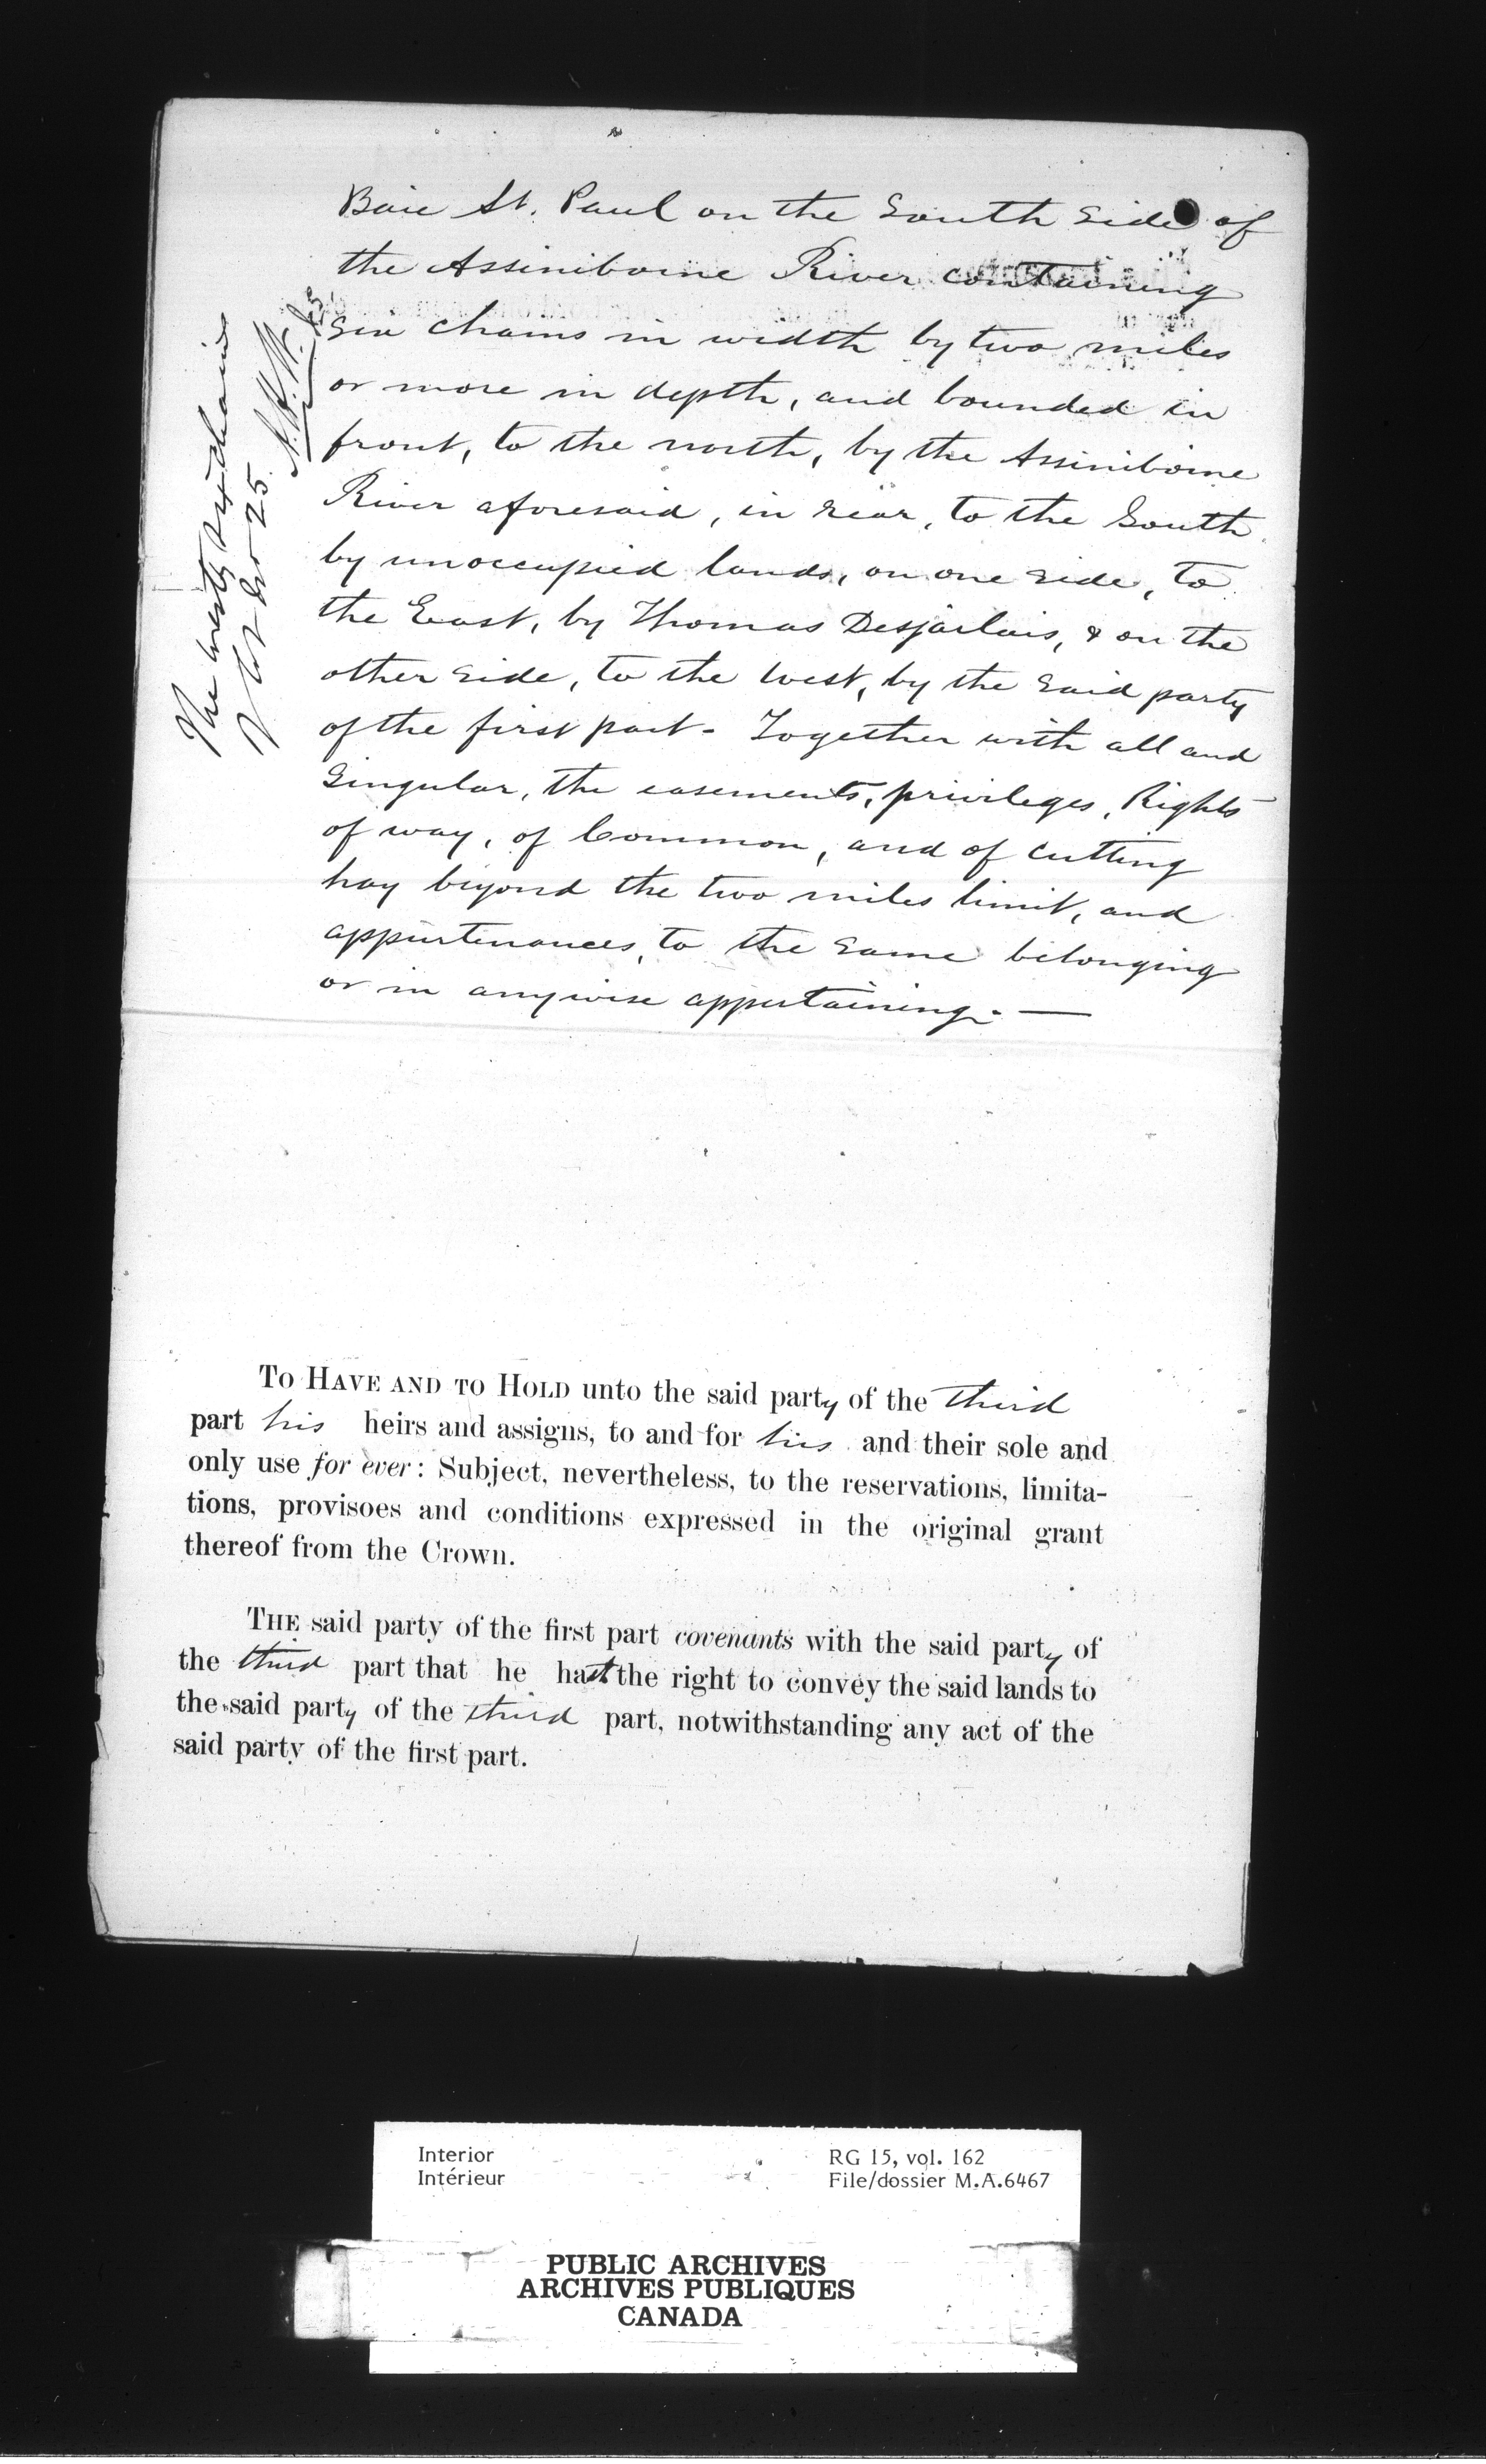 Baie St. Paul on the South side of
the Assiniboine River containing
six chains in width by two miles
or more in depth, and bounded in
front, to the north, by the Assiniboine
River aforesaid, in rear, to the South
by unoccupied lands, on one side, to
the East, by Thomas Desjarlais, & on the
other side, to the West, by the said party
of the first part. Together with all and
Singular, the easements, privileges, Rights
of way, of Common, and of cutting
hay beyond the two miles limit, and
appurtenances, to the same belonging
or in anywise appertaining. —
The west six chains
of Lot No 25.
To Have and to Hold unto the said party of the third
part his heirs and assigns, to and for his and their sole and
only use for ever: Subject, nevertheless, to the reservations, limita-
tions, provisoes and conditions expressed in the original grant
thereof from the Crown.
The said party of the first part covenants with the said party of
the third part that he hath the right to convey the said lands to
the said party of the third part, notwithstanding any act of the
said party of the first part.
Interior
Intérieur
RG 15, vol. 162
File/dossier M.A.6467
PUBLIC ARCHIVES
ARCHIVES PUBLIQUES
CANADA